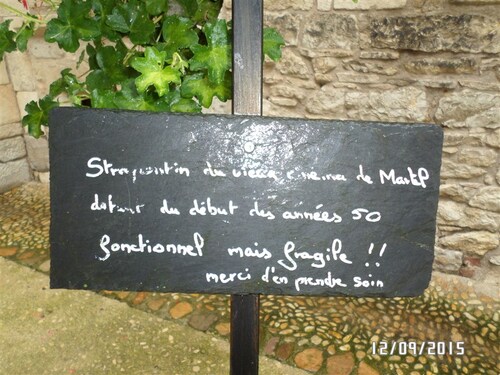 Strapontin du vieux cinéma de Martel
datant du début des années 50
fonctionnel mais fragile !!
merci d'en prendre soin
12/09/2015